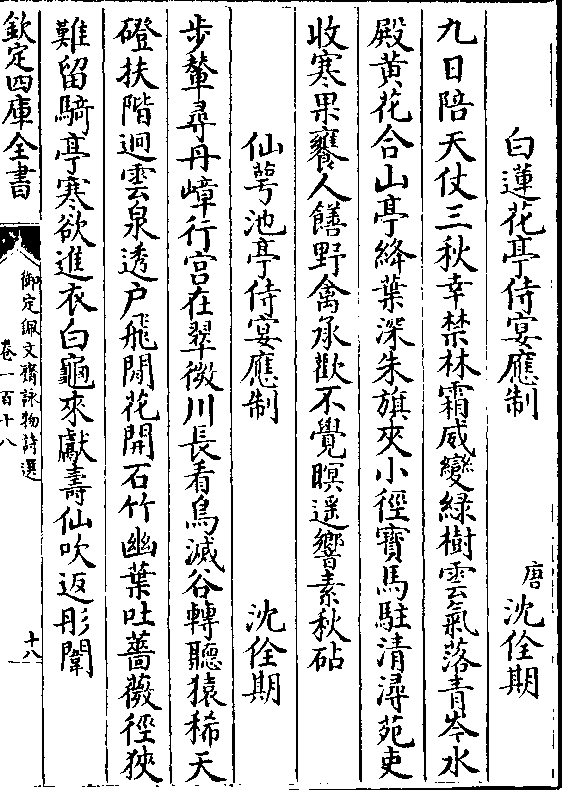 白蓮花亭侍宴應制 唐沈佺期
九日陪天仗三秋幸禁林霜威變綠樹雲氣落青岑水
殿黄花合山亭絳葉深朱旗夾小徑寶馬駐清潯苑吏
收寒果饔人饍野禽承歡不覺暝遥響素秋砧
仙萼池亭侍宴應制 沈佺期
步輦尋丹嶂行宫在翠微川長看鳥滅谷轉聽猿稀天
磴扶階迥雲泉透户飛閒花開石竹幽葉吐薔薇徑狹
難留騎亭寒欲進衣白龜來獻壽仙吹返彤闈
欽定四庫全書
御定佩文齋詠物詩選
卷一百十八
十八